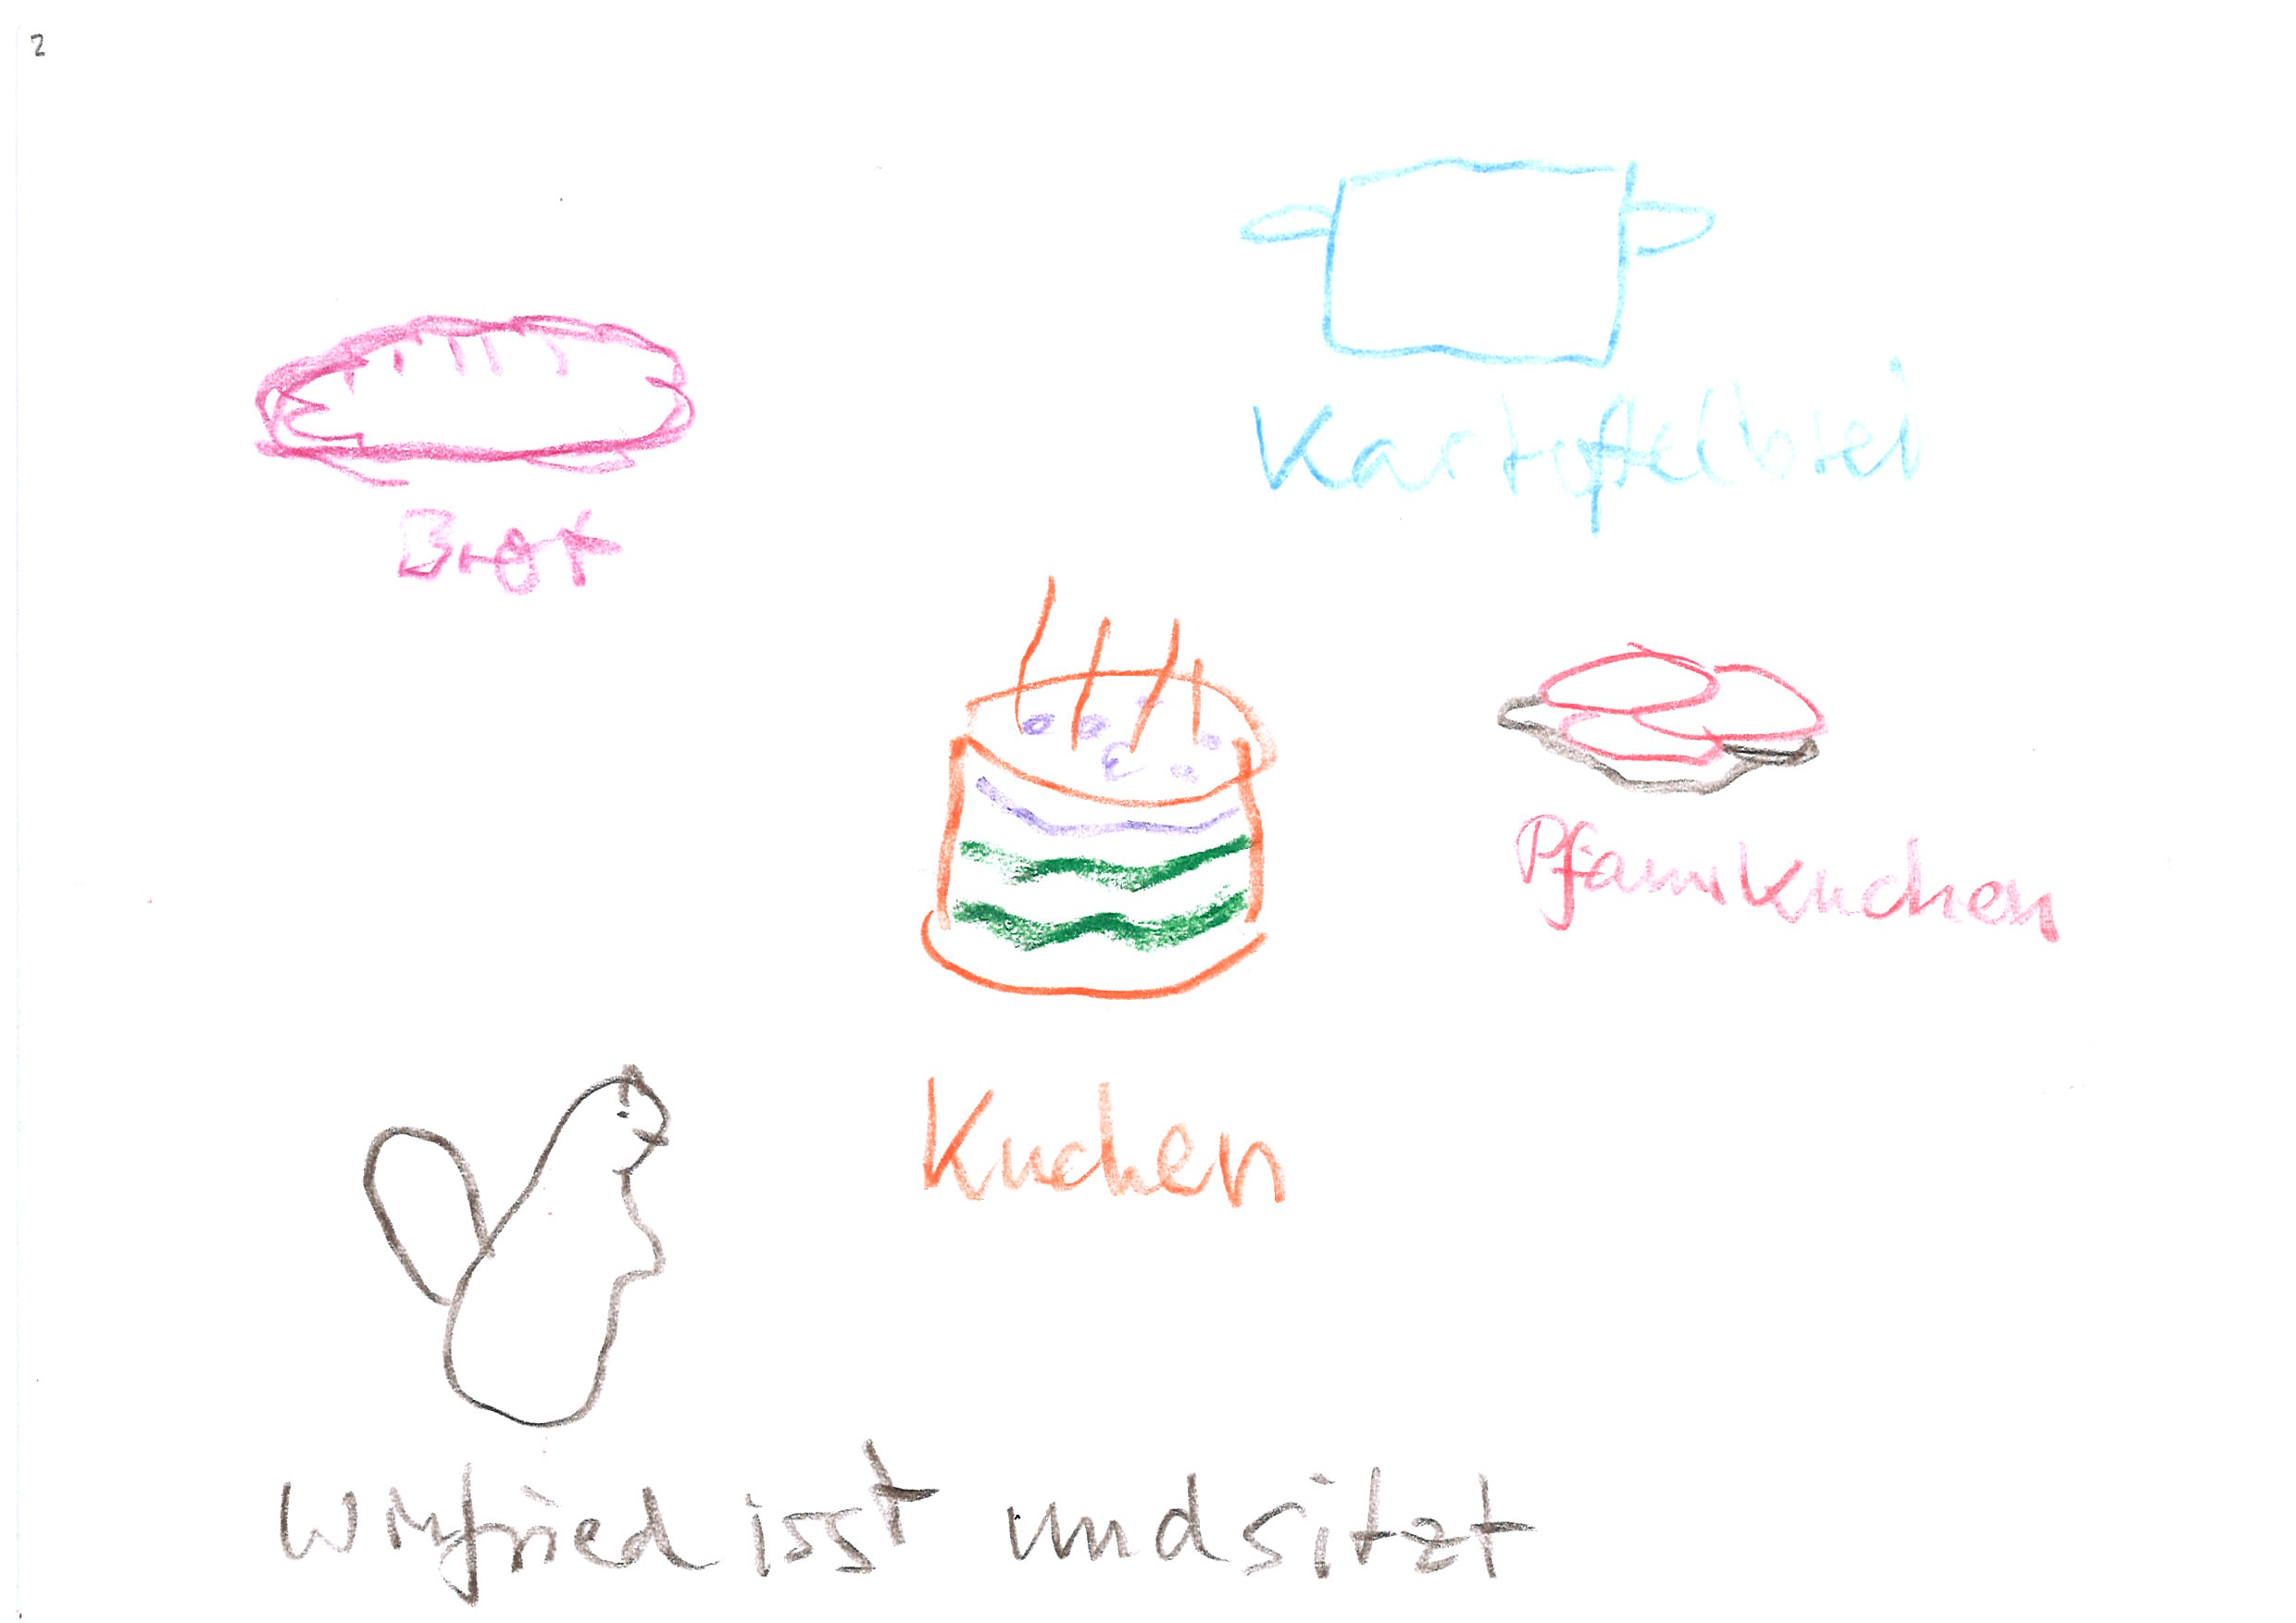 2
Kartoffelbrei
Brot
Pfannkuchen
Kuchen
Winfried isst und sitzt